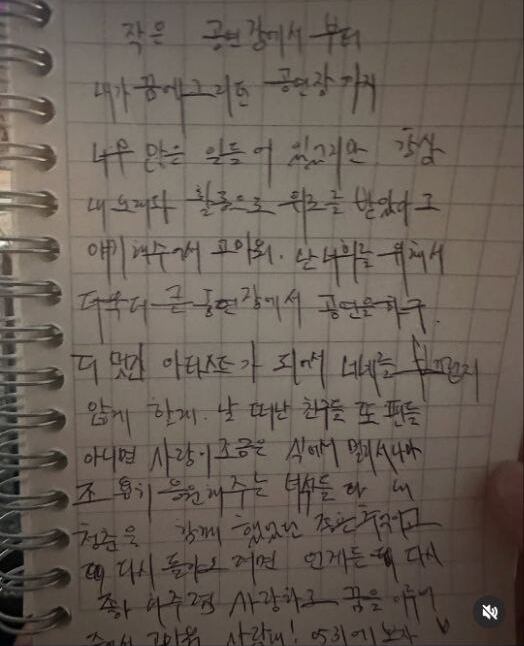 작은 공연장에서 부터
내가 꿈에그리던 공연장 까지
너무 많은 일들이 있었지만 항상
내 노래와 활동으로 위로를 받았다고
얘기해주어서 고마워. 난 너희를 위해서
더욱더 큰 공연장에서 공연을하구.
더 멋진 아티스트가 되어서 너네를
않게 할게. 날 떠난 친구들 또 팬들
아니면 사랑이 조금은 식어서 멀리서나마
조용히 응원해주는 녀석들 다 내
청춘을 함께 했었던 좋은추억이고
다시 돌아오려면 언제든 다시
사랑하고 꿈을 이루어
고마워 사랑해!